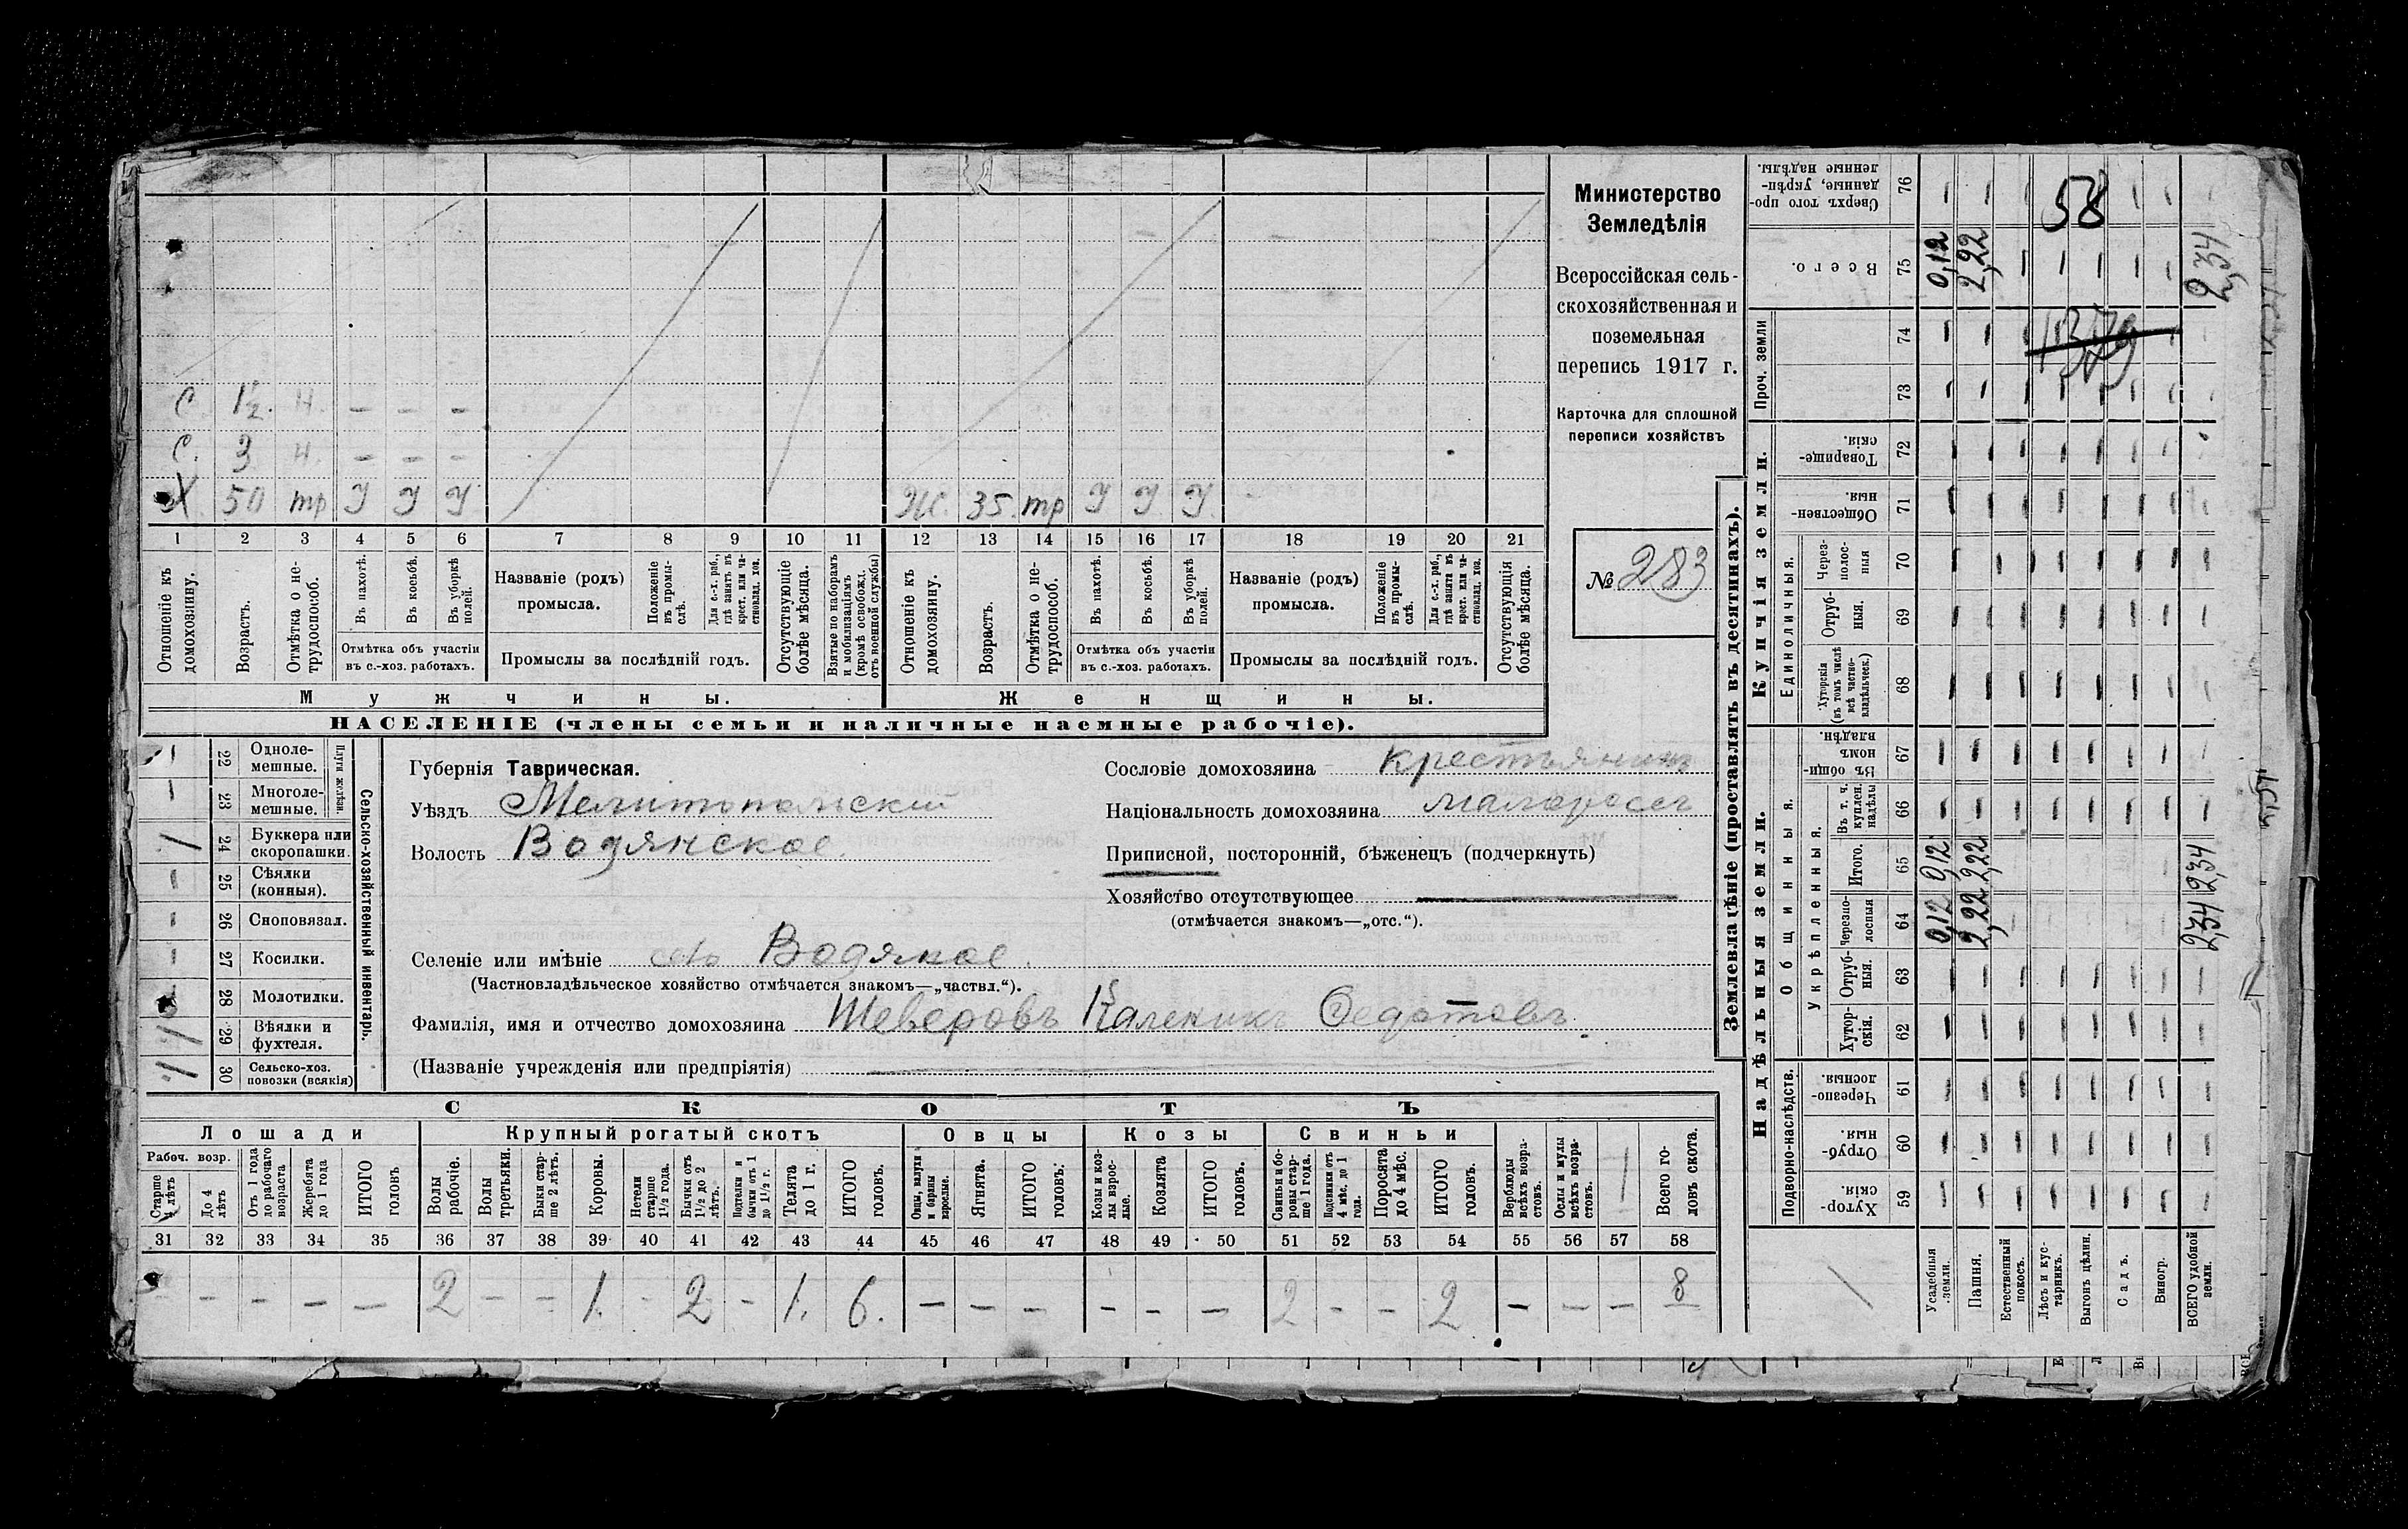 С. 1½. н. — — —
С. 3 н. — — —
Х 50 тр У У У Ж. 35. тр У У У.
1 2 3 4 5 6 7 8 9 10 11 12 13 14 15 16 17 18 19 20 21
Отношеніе къ домохозяину.
Возрастъ.
Отмѣтка о нетрудоспособ.
Въ пахотѣ.
Въ косьбѣ.
Въ уборкѣ полей.
Отмѣтка объ участіи
въ с.-хоз. работахъ.
Названіе (родъ)
промысла.
Положеніе въ промыслѣ.
Для с.-х. раб., гдѣ занятъ въ крест. или частновлад. хоз.
Промыслы за послѣдній годъ.
Отсутствующіе болѣе мѣсяца.
Взятые по наборамъ и мобилизаціямъ (кромѣ освобожд. отъ военной службы)
Отношеніе къ домохозяину.
Возрастъ.
Отмѣтка о нетрудоспособ.
Въ пахотѣ.
Въ косьбѣ.
Въ уборкѣ полей.
Отмѣтка объ участіи
въ с.-хоз. работахъ.
Названіе (родъ)
промысла.
Положеніе въ промыслѣ.
Для с.-х. раб., гдѣ занята въ крест. или частновлад. хоз.
Промыслы за послѣдній годъ.
Отсутствующія болѣе мѣсяца.
Мужчины.
Женщины.
НАСЕЛЕНІЕ (члены семьи и наличные наемные рабочіе).
Министерство
Земледѣлія
Всероссійская сель-
скохозяйственная и
поземельная
перепись 1917 г.
Карточка для сплошной
переписи хозяйствъ
№ 283
22 Одноле-
мешные.
23 Многоле-
мешные.
Плуги желѣзн.
24 Буккера или
скоропашки.
25 Сѣялки
(конныя).
26 Сноповязал.
27 Косилки.
28 Молотилки.
29 Вѣялки и
фухтеля.
30 Сельско-хоз.
повозки (всякія)
Сельско-хозяйственный инвентарь.
Губернія Таврическая.
Уѣздъ Мелитопольскій
Волость Водянское.
Селеніе или имѣніе село Водяное.
(Частновладѣльческое хозяйство отмѣчается знакомъ—„частвл.“).
Фамилія, имя и отчество домохозяина Шеверовъ Каленикъ Федотовъ.
(Названіе учрежденія или предпріятія)
Сословіе домохозяина крестьянинъ
Національность домохозяина малороссъ
Приписной, посторонній, бѣженецъ (подчеркнуть)
Хозяйство отсутствующее
(отмѣчается знакомъ—„отс.“).
СКОТЪ
Лошади
Крупный рогатый скотъ
Овцы
Козы
Свиньи
Рабоч. возр.
Старше 4 лѣтъ
До 4 лѣтъ
Отъ 1 года до рабочаго возраста
Жеребята до 1 года
ИТОГО головъ
Волы рабочіе.
Волы третьяки.
Быки старше 2 лѣтъ.
Коровы.
Нетели старше 1½ года.
Бычки отъ 1½ до 2 лѣтъ.
Подтелки и бычки отъ 1 до 1½ г.
Телята до 1 г.
ИТОГО головъ.
Овцы, валухи и бараны взрослые.
Ягнята.
ИТОГО головъ.
Козы и козлы взрослые.
Козлята
ИТОГО головъ.
Свиньи и боровы старше 1 года.
Подсвинки отъ 4 мѣс. до 1 года.
Поросята до 4 мѣс.
ИТОГО головъ.
Верблюды всѣхъ возрастовъ.
Ослы и мулы всѣхъ возрастовъ.
Всего головъ скота.
31 32 33 34 35 36 37 38 39 40 41 42 43 44 45 46 47 48 49 50 51 52 53 54 55 56 57 58
— — — — — 2 — — 1. — 2 — 1. 6. — — — — — — 2 — — 2 — — — 8
Землевладѣніе (проставлять въ десятинахъ).
Купчія земли.
Надѣльныя земли.
Проч. земли
Единоличныя.
Общинныя.
Укрѣпленныя.
Подворно-наслѣдств.
76 Сверхъ того проданные, укрѣпленные надѣлы.
75 Всего.
74
73
72 Товарищескія.
71 Общественныя.
70 Черезполосныя
69 Отрубныя.
68 Хуторскія (въ томъ числѣ всѣ частновладѣльческ.)
67 Въ общинномъ владѣн.
66 Въ т. ч. куплен. надѣлы
65 Итого.
64 Черезполосныя
63 Отрубныя.
62 Хуторскія.
61 Черезполосныя
60 Отрубныя.
59 Хуторскія.
Усадебныя земли.
Пашня.
Естественный покосъ.
Лѣсъ и кустарникъ.
Выгонъ цѣлин.
Садъ.
Виногр.
ВСЕГО удобной земли.
58
0,12 2,22 2,34
1379
0,12 2,22 2,34
0,12 2,22 2,34